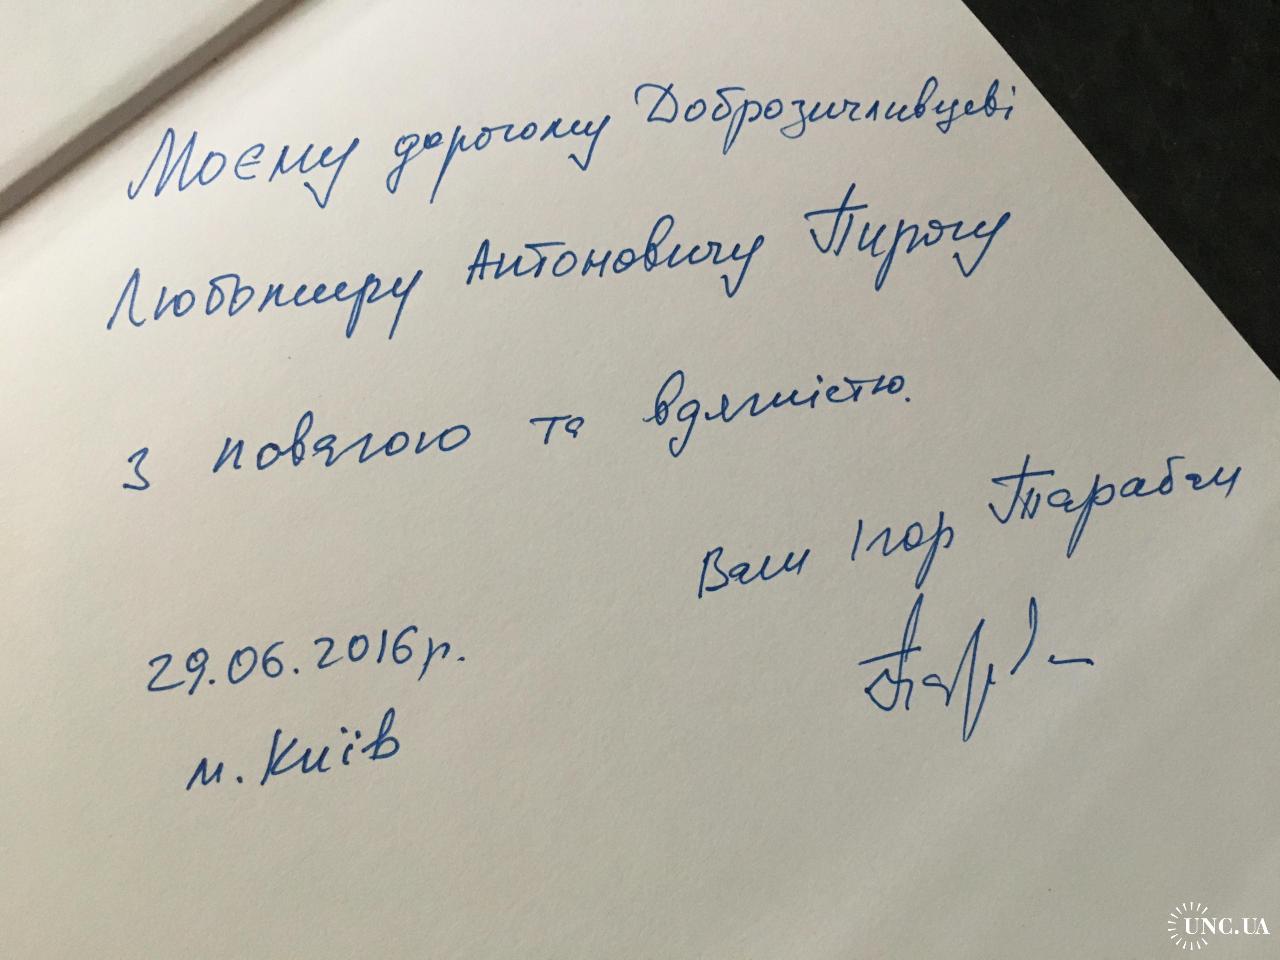 Моєму дорогому Доброзичливцеві
Любомиру Антоновичу Пирогу
з повагою та вдячністю.
Ваш Ігор Тарабан
29.06.2016р.
м. Київ
UNC.UA